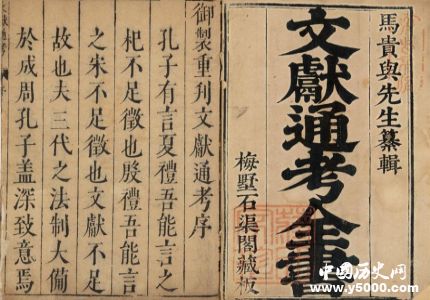 馬貴與先生纂輯
文獻通考全書
梅墅石渠閣藏板
御製重刊文獻通考序
孔子有言夏禮吾能言之
杞不足徵也殷禮吾能言
之宋不足徵也文獻不足
故也夫三代之法制大備
於成周孔子盖深致意焉
中国历史网
www.y5000.com